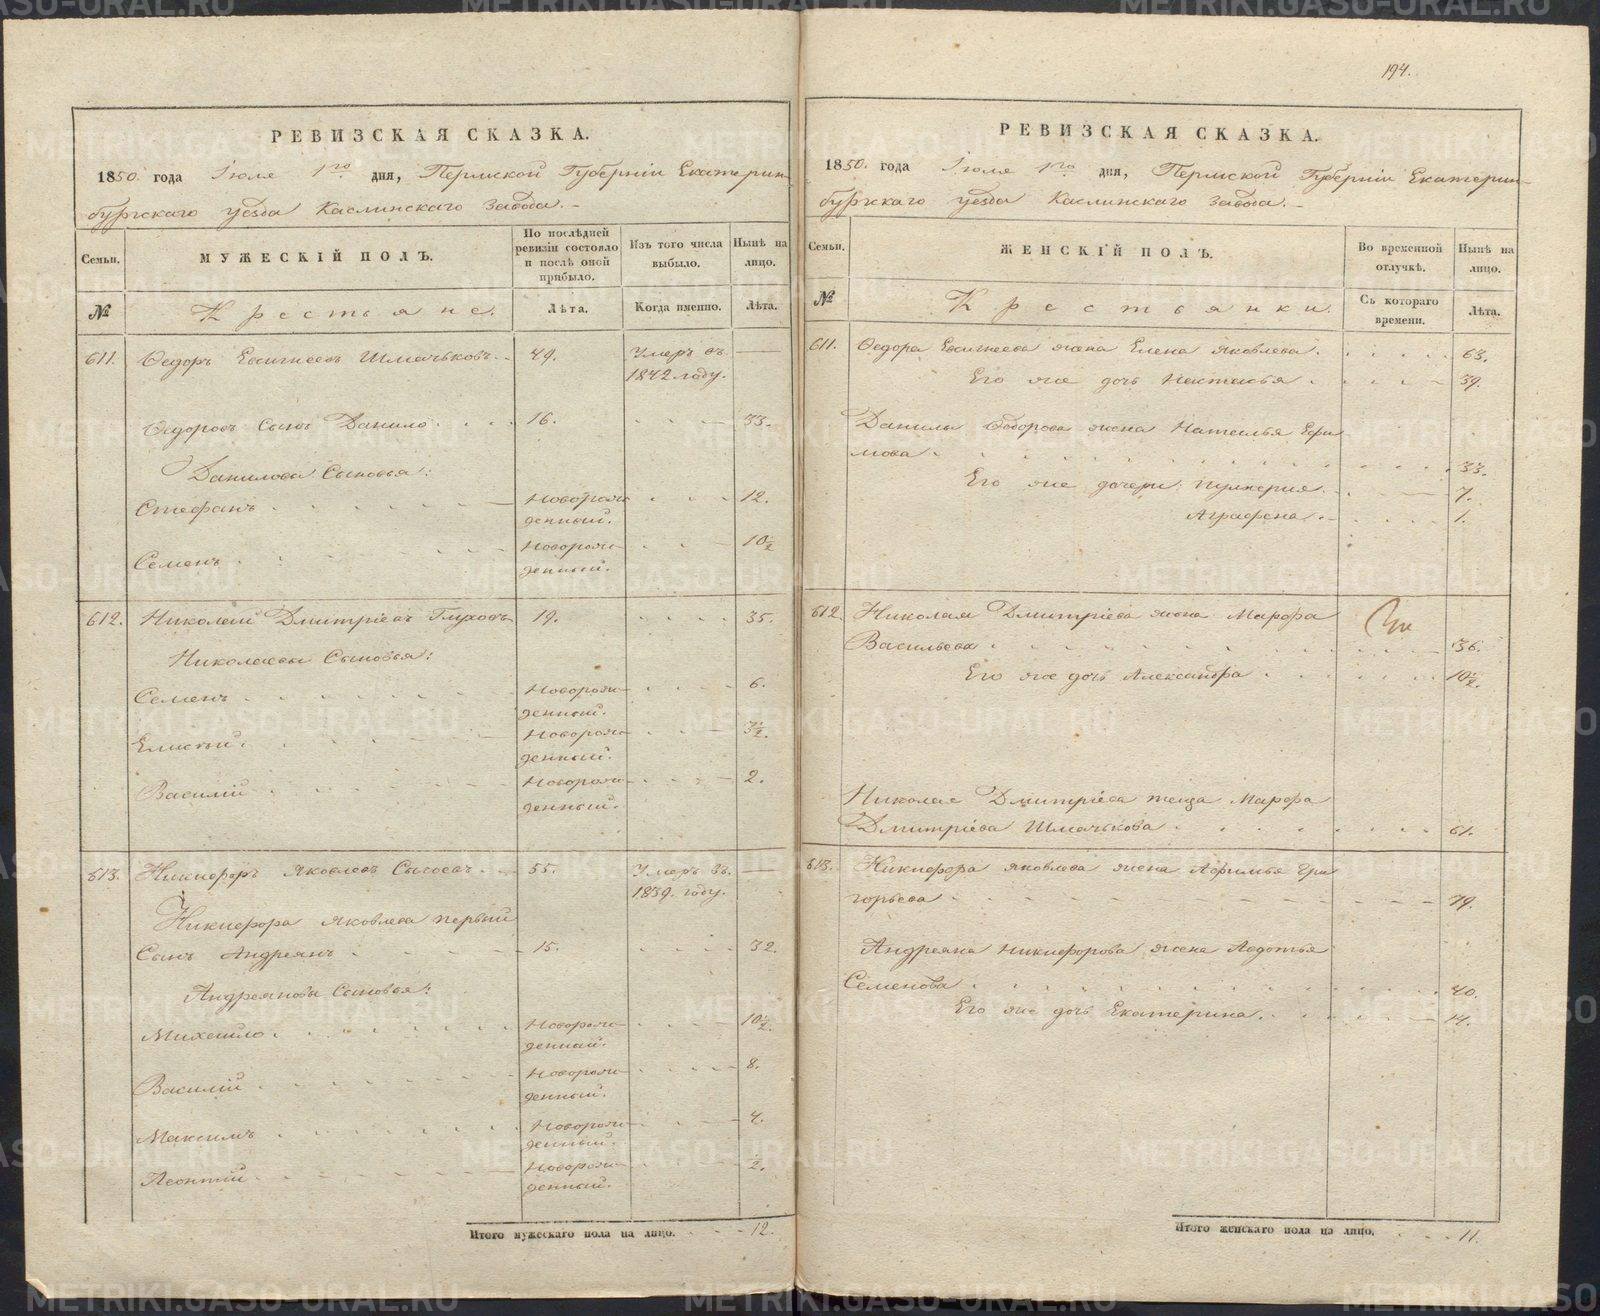 194.
РЕВИЗСКАЯ СКАЗКА.
1850. года Іюля 1го дня, Пермской Губерніи Екатерин-
бургскаго уѣзда Каслинскаго Завода.
Семьи. МУЖЕСКІЙ ПОЛЪ. По послѣдней ревизіи состояло и послѣ оной прибыло. Изъ того числа выбыло. Нынѣ на лицо.
№ Крестьяне. Лѣта. Когда именно. Лѣта.
611. Ѳедоръ Шмачьковъ 49. Умеръ въ
1842 году.
Ѳедоровъ Сынъ Данило 16. 33.
Даниловы Сыновья:
Стефанъ Новорож- 12.
денный.
Семенъ Новорож- 10½
денный.
612. Николай Дмитріевъ Глуховъ 19. 35.
Николаевы Сыновья:
Семенъ Новорож- 6.
денный.
Елисѣй Новорож- 3½.
денный.
Василій Новорож- 2.
денный.
613. Никифоръ Яковлевъ 55. Умеръ въ
1839. году.
Никифора Яковлева первый
Сынъ Андреянъ 15. 32.
Андреяновы Сыновья:
Михайло Новорож- 10½.
денный.
Василій Новорож- 8.
денный.
Максимъ Новорож- 4.
денный.
Леонтій Новорож- ½.
денный.
Итого мужескаго пола на лицо. 12.
РЕВИЗСКАЯ СКАЗКА.
1850. года Іюля 1го дня, Пермской Губерніи Екатерин-
бургскаго уѣзда Каслинскаго Завода.
Семьи. ЖЕНСКІЙ ПОЛЪ. Во временной отлучкѣ. Нынѣ на лицо.
№ Крестьянки. Съ котораго времени. Лѣта.
611. Ѳедора жена Елена Яковлева. 63.
Его же дочь Настасья 39.
Данилы Ѳедорова жена Наталья Ефи
мова 33.
Его же дочери: Пулхерия 7.
Аграфена 1.
612. Николая Дмитріева жена Марфа
Васильева 36.
Его же дочь Александра 10½.
Николая Дмитріева теща Марфа
Дмитріева Шмачькова 61.
613. Никифора Яковлева жена Афимья Гри
горьева 79.
Андреяна Никифорова жена Авдотья
Семенова 40.
Его же дочь Екатерина. 14.
Итого женскаго пола на лицо. 11.
METRIKI.GASO-URAL.RU